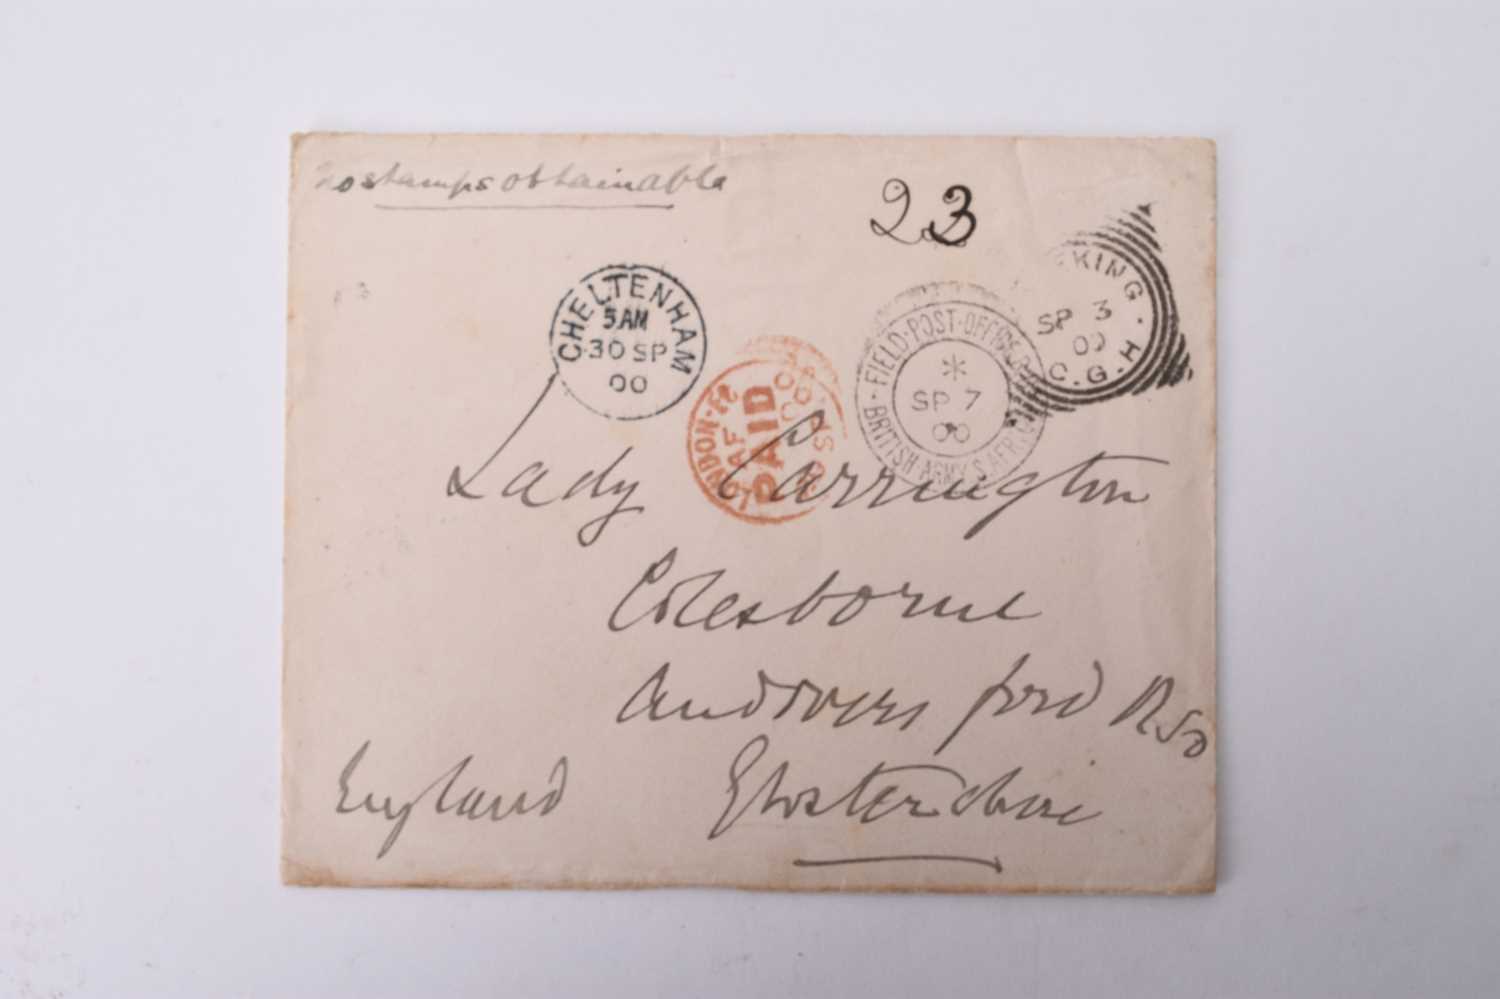 No stamps obtainable
23
CHELTENHAM
5 AM
30 SP
00
LONDON
PAID
SP 00
FIELD·POST·OFFICE
BRITISH·ARMY S.AFRICA
*
SP 7
00
KING.
SP 3
00
C.G.H
Lady Carrington
Colesborne
Andovers ford RSO
England Glostershire